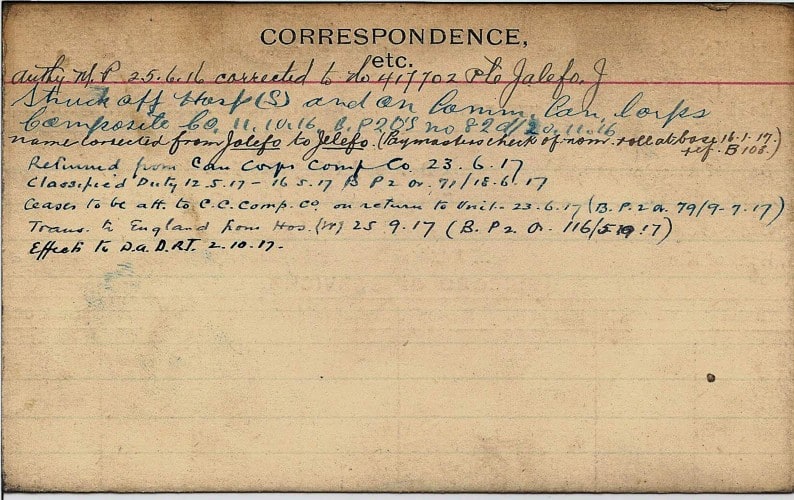 CORRESPONDENCE,
etc.
Authy M.P. 25.6.16 corrected to No 417702 Pte Jalefo. J
Struck off Hosp (S) and on Comm. Can. Corps
Composite Co. 11.10.16 B.P2O's no 82 d/20.11.16
name corrected from Jalefo to Jelefo. (Paymasters check of nom. roll at base 16.1.17.
ref. B 108.)
Returned from Can Corps Comp Co. 23.6.17
Classified Duty 12.5.17 - 16.5.17 B P 2 Or. 71/18.6.17
Ceases to be att. to C.C. Comp. Co. on return to Unit - 23.6.17 (B.P.2 Or. 79/9-7.17)
Trans. to England from Hos. (W) 25.9.17 (B.P2. Or. 116/5 .17)
Effects to D.a.D.R.T. 2.10.17.